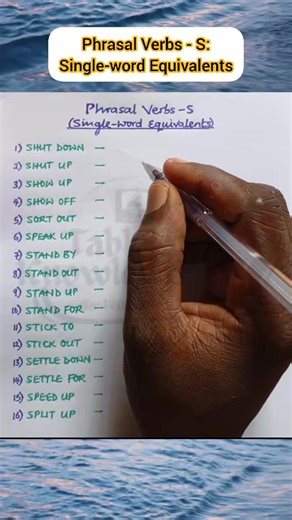 Phrasal Verbs - S:
Single-word Equivalents
Phrasal Verbs - S
(Single-word Equivalents)
1) SHUT DOWN —
2) SHUT UP —
3) SHOW UP —
4) SHOW OFF —
5) SORT OUT —
6) SPEAK UP —
7) STAND BY —
8) STAND OUT —
9) STAND UP —
10) STAND FOR —
11) STICK TO —
12) STICK OUT —
13) SETTLE DOWN —
14) SETTLE FOR —
15) SPEED UP —
16) SPLIT UP —